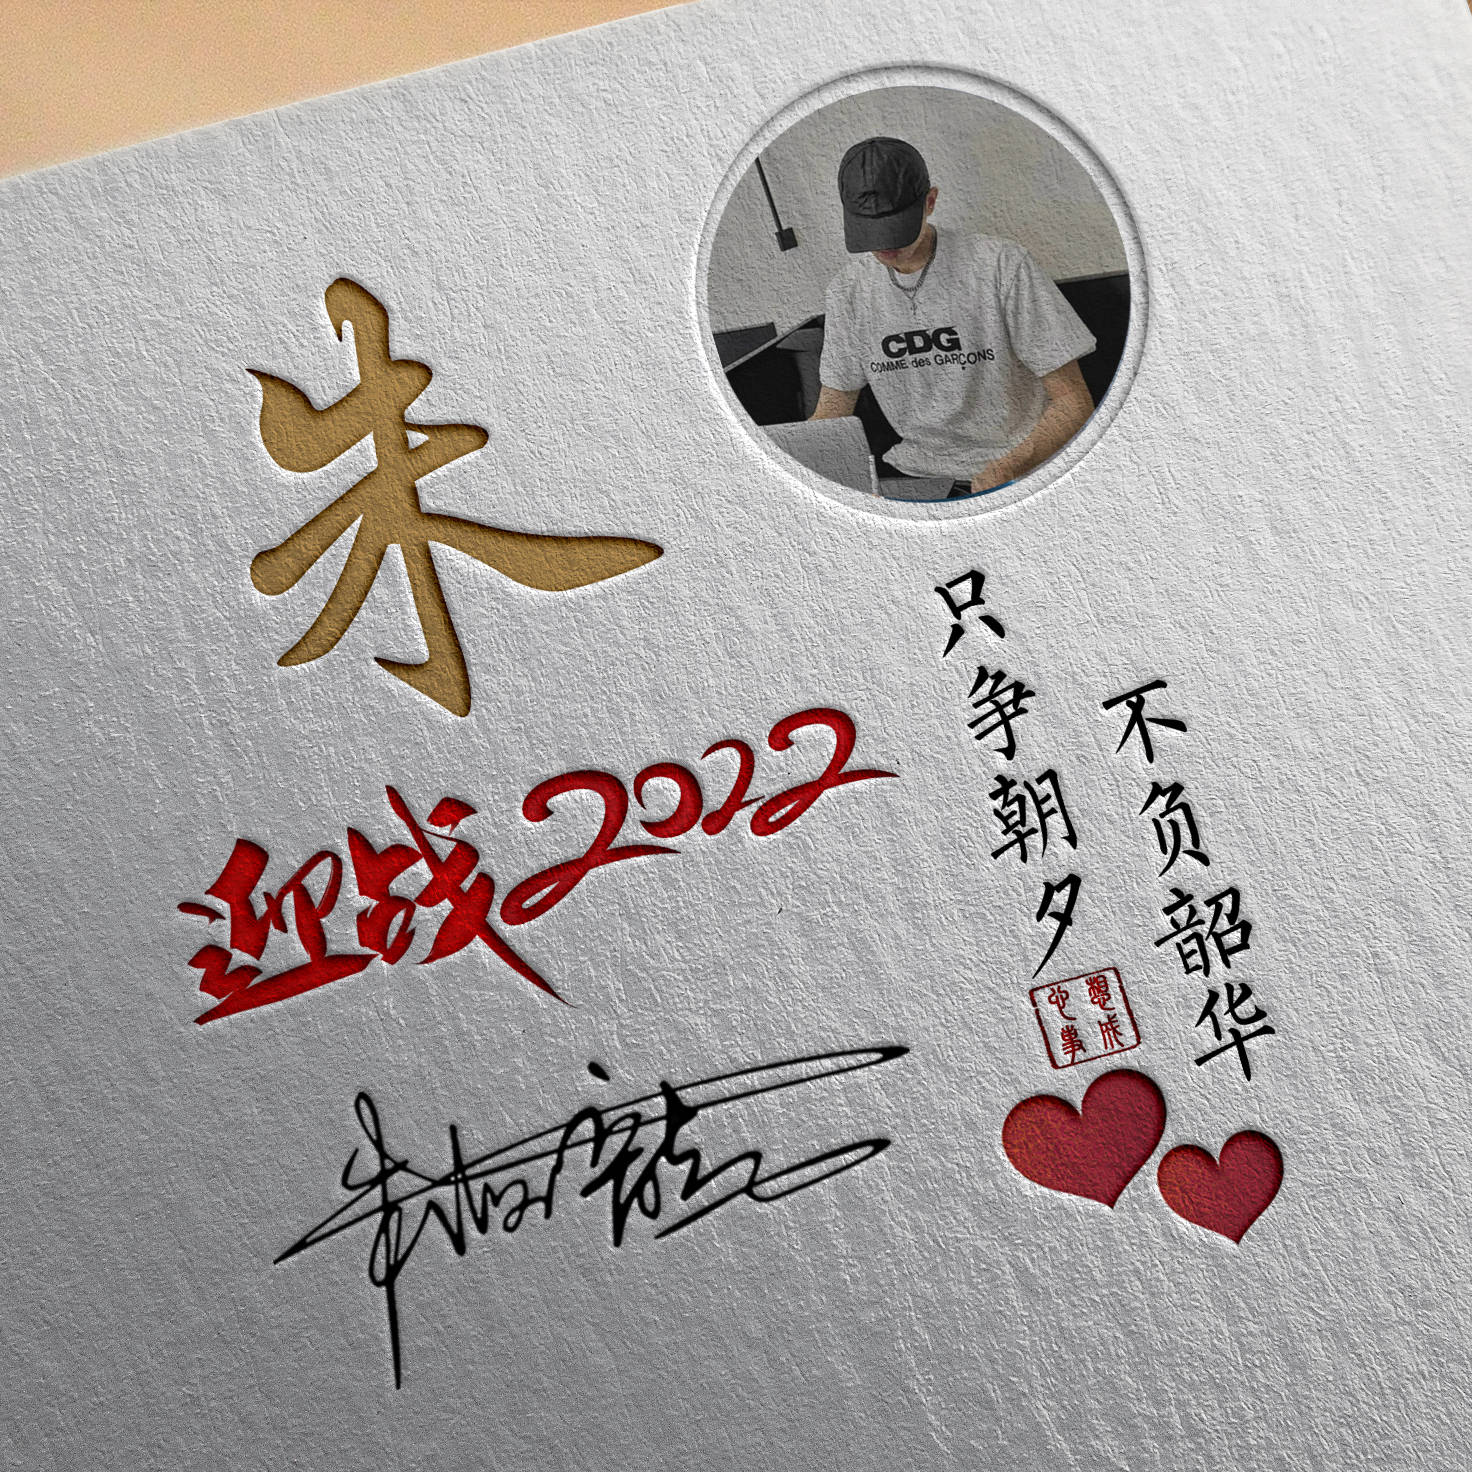 CDG
COMME des GARÇONS
朱
只争朝夕
不负韶华
迎战2022
想成
心事